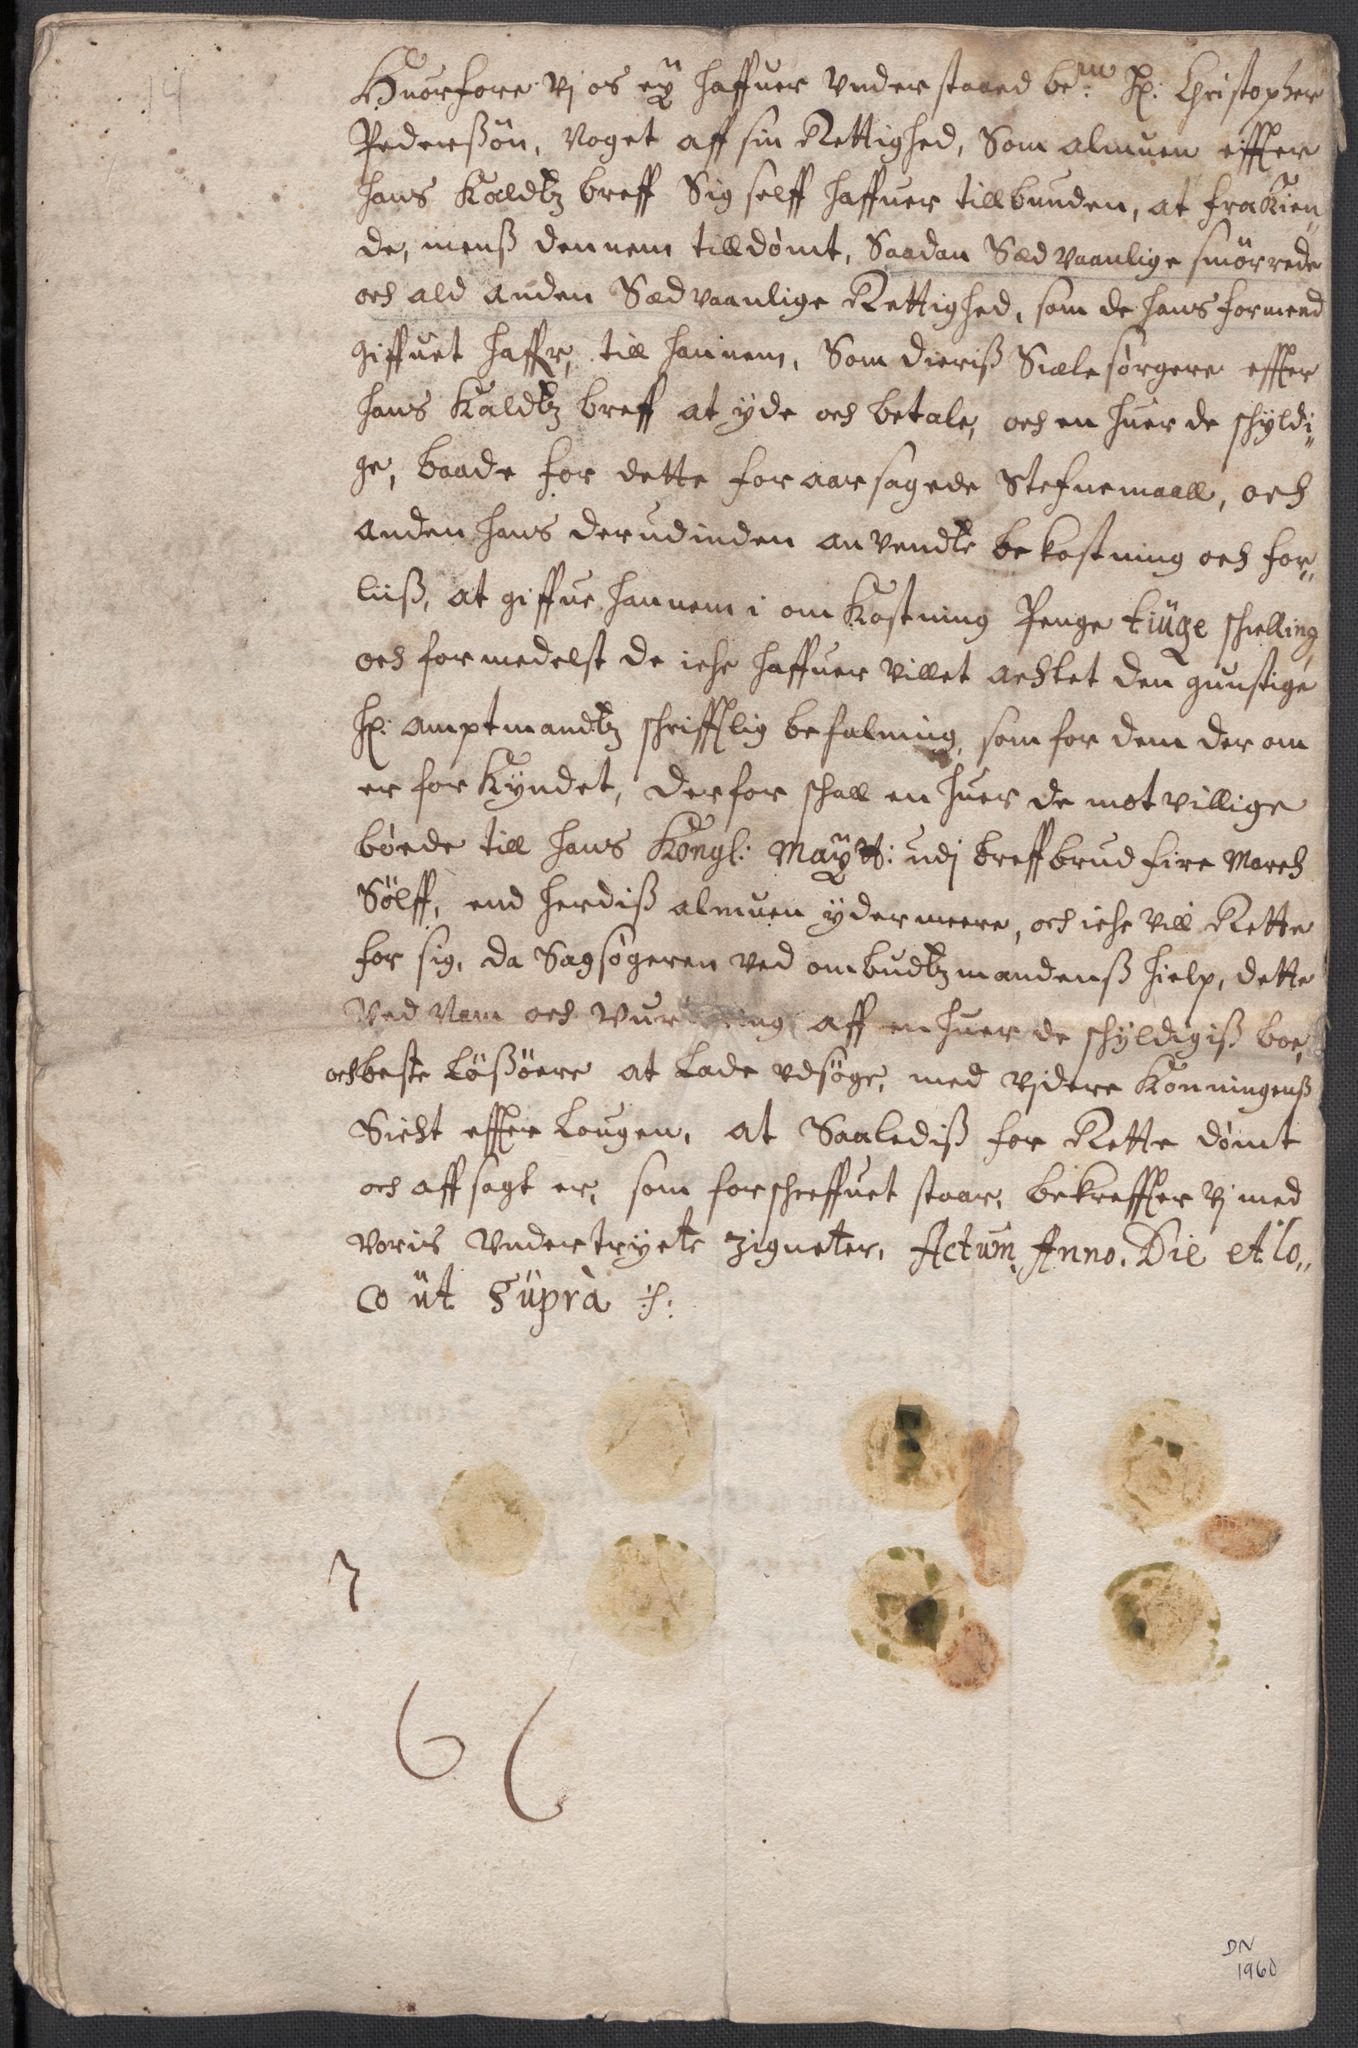 14
Huorfore vj os eÿ haffuer vnderstaaed be:m Hr: Christopher
Pederßøn, noget aff sin Rettighed, Som almuen effter
hans Kaldtz breff Sig self haffuer tillbunden, at fra Kien„
de, menß dennem tilldømt, Saadan Sædvaanlige smörrede
och ald anden Sædvaanlige Rettighed, som de hans formend
giffuet haffr, till hannem, Som dieriß Siælesørgere effter
hans Kaldtz breff at ÿde och betale, och en huer de schÿldi„
ge, baade for dette foraarsagede Stefnemaall, och
anden hans derudinden anvendte bekostning och for„
liiß, at giffue hannem i omKostning Penge tiüge schilling,
och formedelst de iche haffuer villet achtet den gunstige
Hr: Amptmandtz schrifftlig befalning, som for dem der om
er forKÿndet, derfor schall en huer de motvillige
bøede till hans Kongl: Maÿtt: udj breffbrud fire March
Sölff, end herdiß almuen ÿdermeere, och iche vill Rette
for sig, da Sagsøgeren ved ombudtzmandenß hielp, dette
Ved Nam och Vurdering aff en huer de schÿldigiß boe,
och beste Lößöere at Lade vdsøge, med vjdere Konningenß
Sicht effter Lougen, at Saalediß for Rette dømt
och affsagt er, som forschreffuet staar, bekreffter vj med
voris vndertrÿcte Zigneter, Actum, Anno, Die et lo„
co üt Süprà
7
66
DN
1960